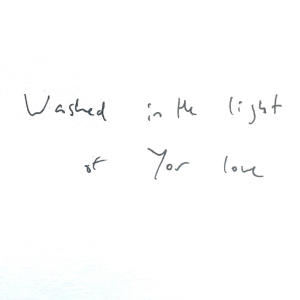 Washed in the light
of Your love